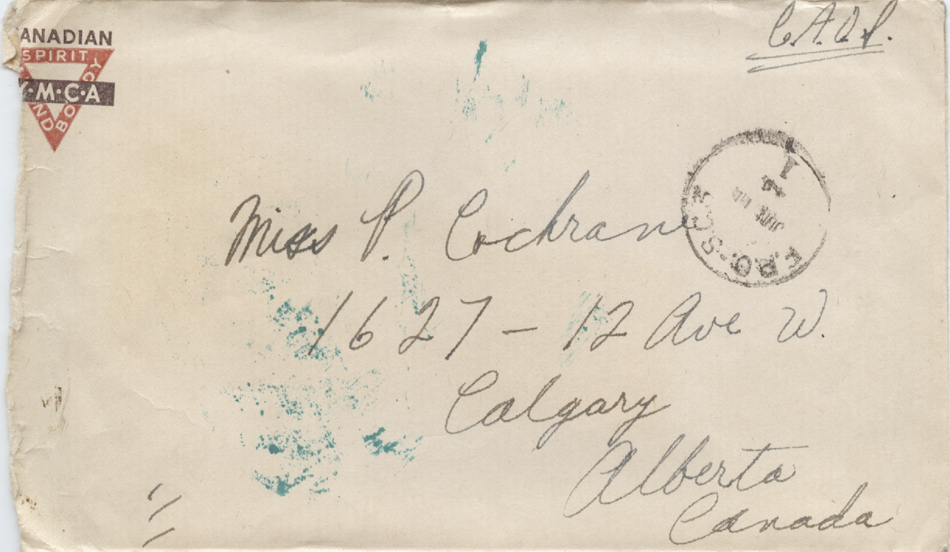 C.A.O.S.
ANADIAN
SPIRIT
Y·M·C·A
MIND
BODY
Miss P. Cochrane
1627 - 12 Ave W.
Calgary
Alberta
Canada
F.P.O.-S.C.
JUN
1